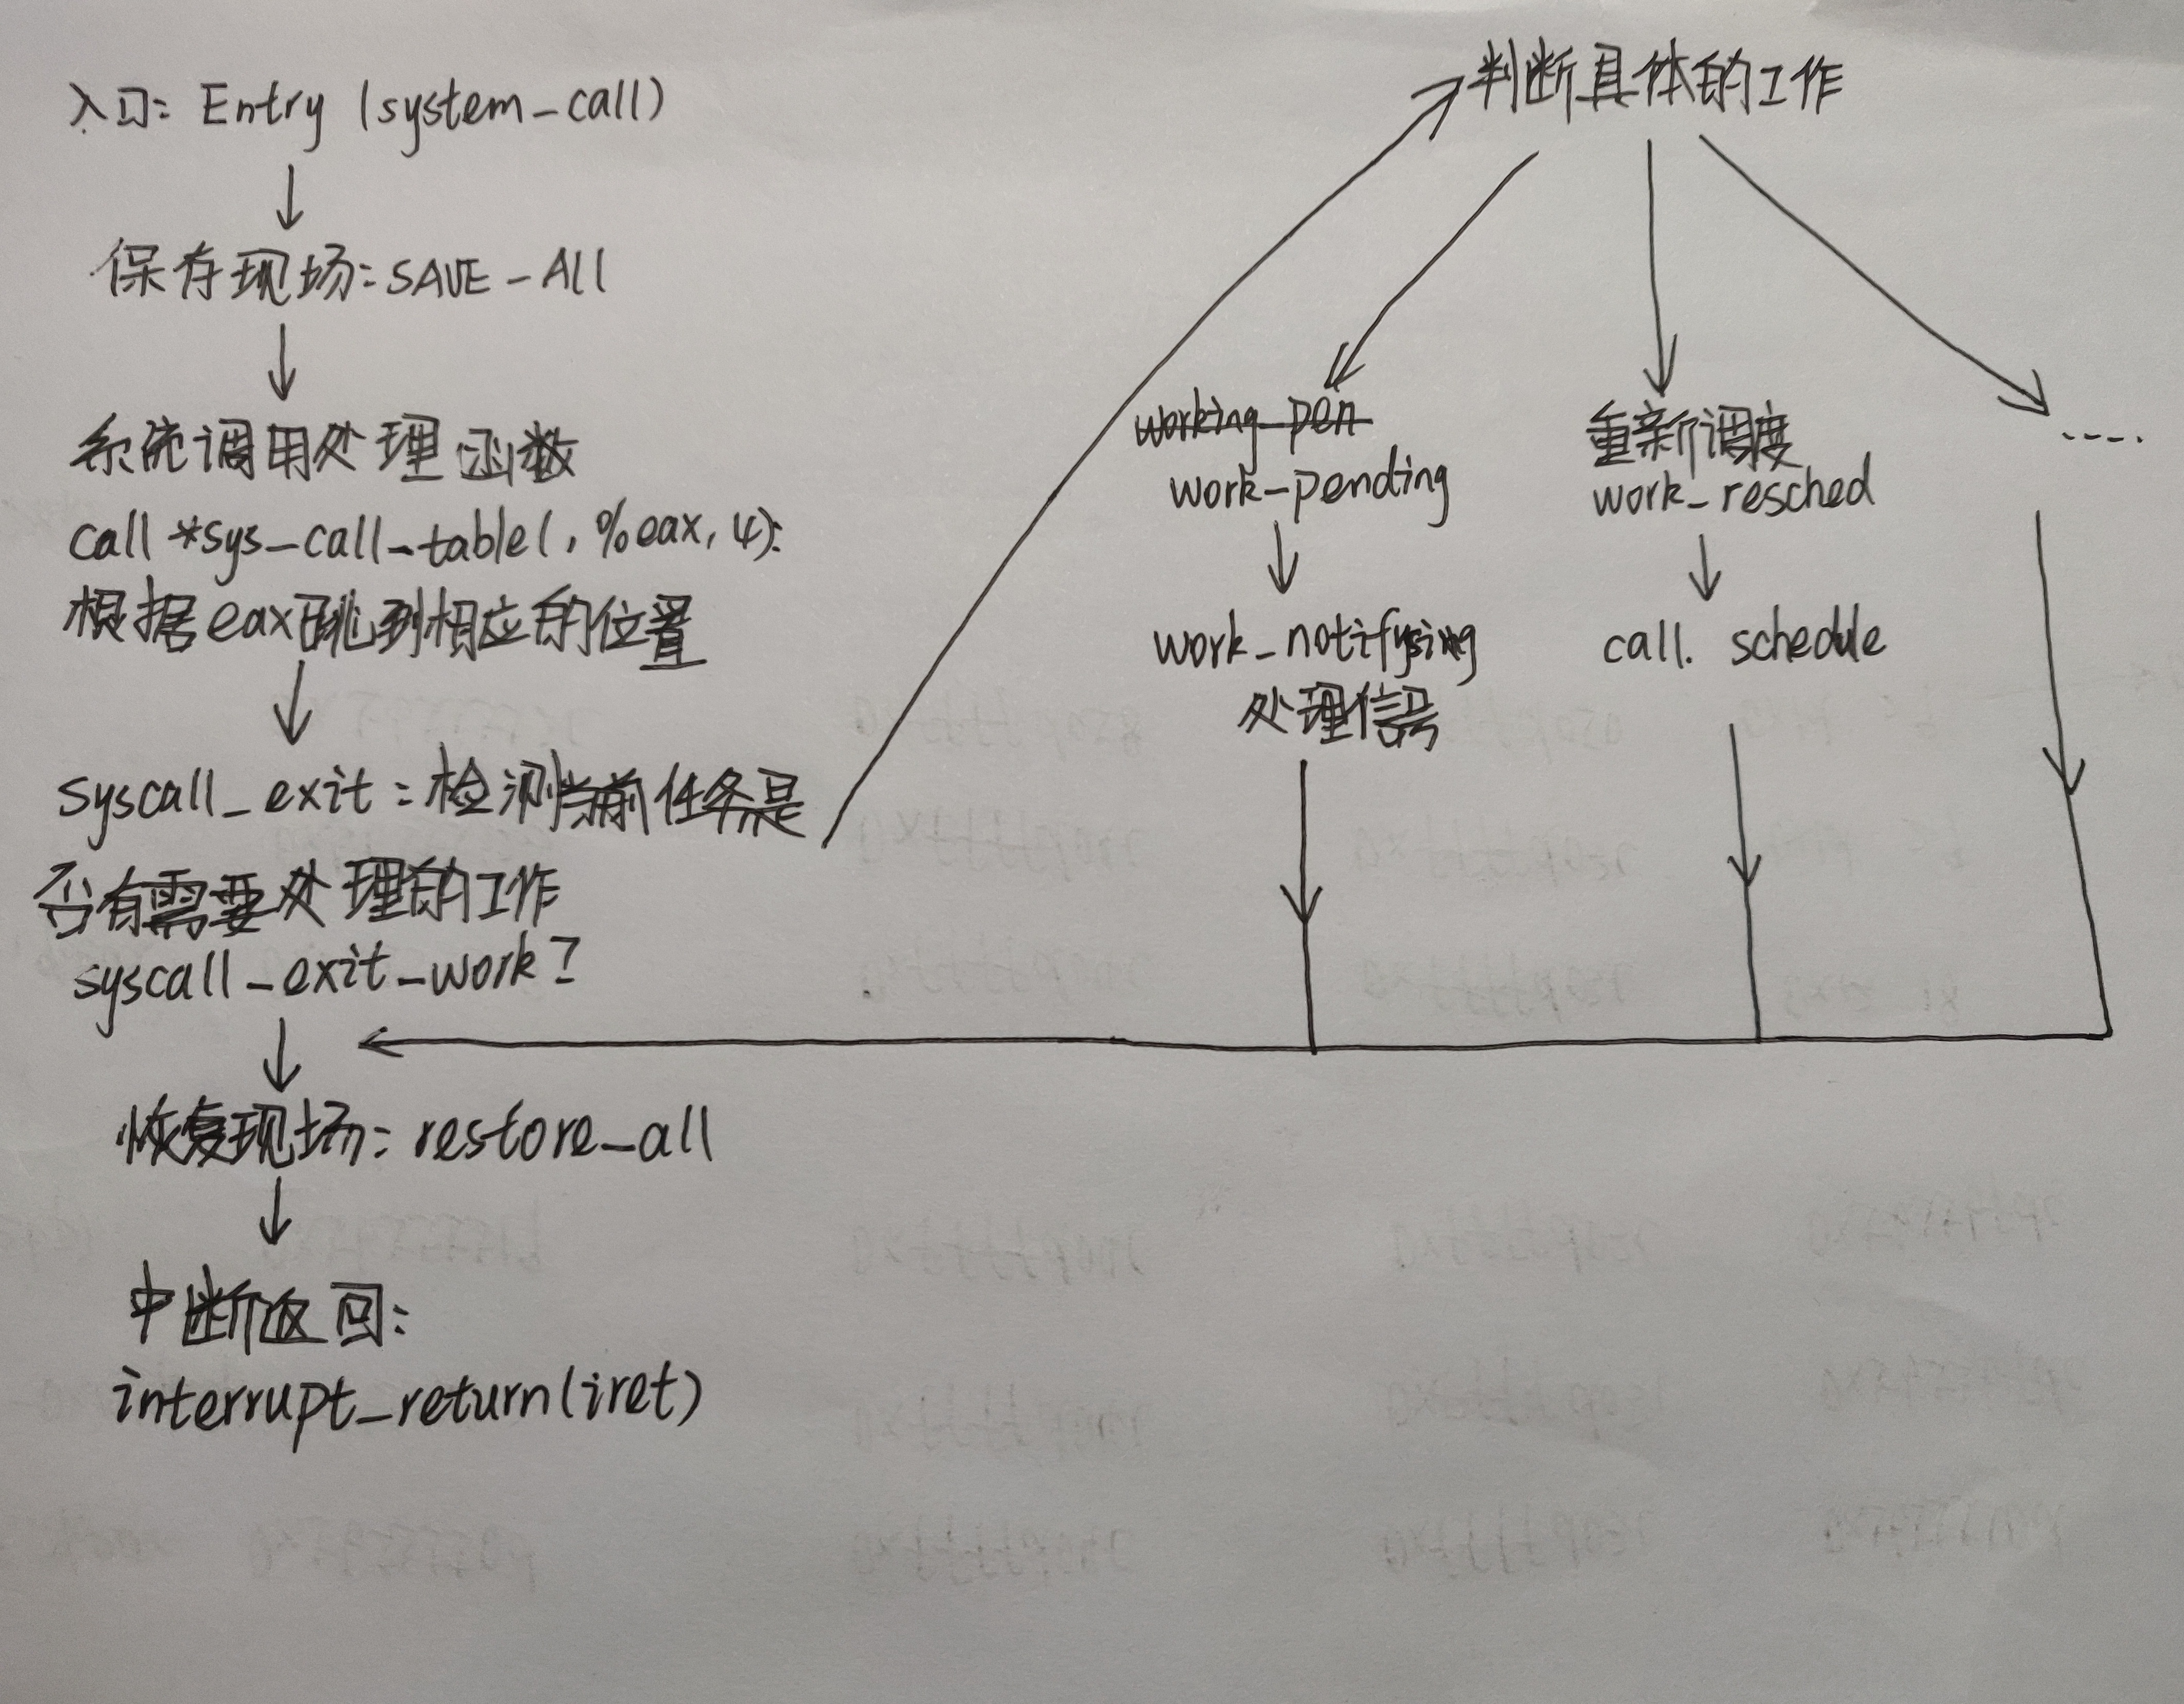 入口: Entry (system_call)
保存现场: SAVE-All
系统调用处理函数
call *sys_call_table(,%eax,4):
根据eax跳到相应的位置
syscall_exit:检测当前任务是
否有需要处理的工作
syscall_exit_work?
恢复现场: restore_all
中断返回:
interrupt_return(iret)
判断具体的工作
working_pen
work_pending
work_notifysing
处理信号
重新调度
work_resched
call. schedule
----